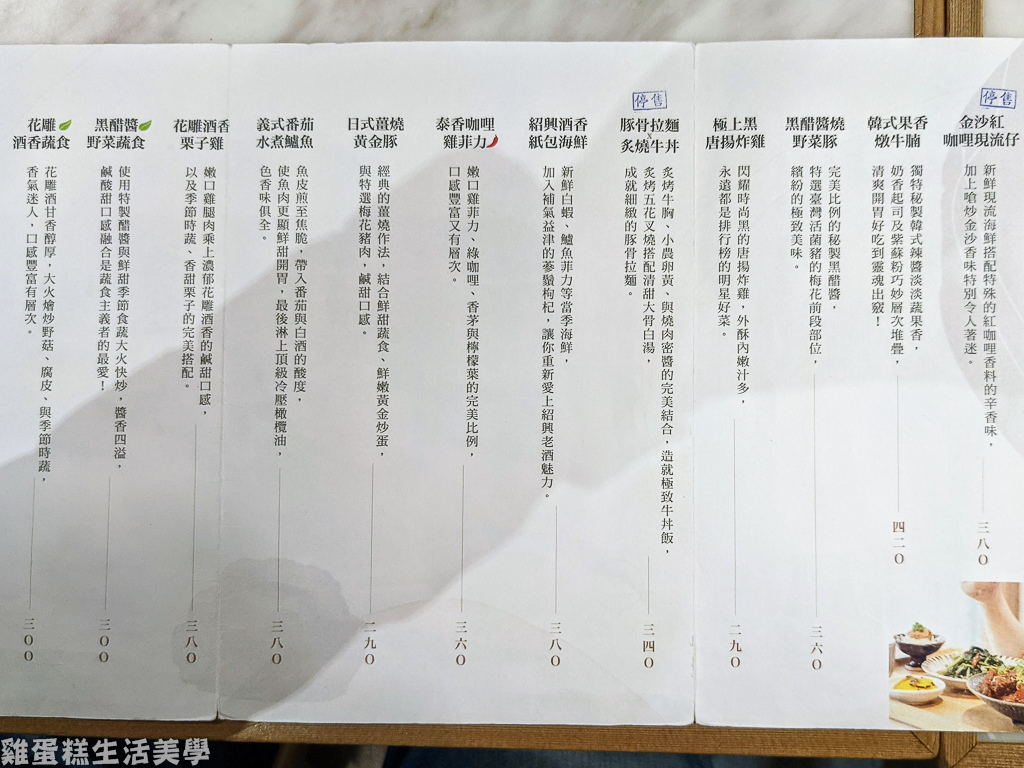 停售
金沙紅
咖哩現流仔
新鮮現流海鮮搭配特殊的紅咖哩香料的辛香味，
加上嗆炒金沙香味特別令人著迷。
三八〇
韓式果香
燉牛腩
獨特秘製韓式辣醬淡淡蔬果香，
奶香起司及紫蘇粉巧妙層次堆疊，
清爽開胃好吃到靈魂出竅！
四二〇
黑醋醬燒
野菜豚
完美比例的秘製黑醋醬，
特選臺灣活菌豬的梅花前段部位，
繽紛的極致美味。
三六〇
極上黑
唐揚炸雞
閃耀時尚黑的唐揚炸雞，外酥內嫩汁多，
永遠都是排行榜的明星好菜。
二九〇
停售
豚骨拉麵
x
炙燒牛丼
炙烤牛胸、小農卵黃、與燒肉密醬的完美結合，造就極致牛丼飯，
炙烤五花叉燒搭配清甜大骨白湯，
成就細緻的豚骨拉麵。
三四〇
紹興酒香
紙包海鮮
新鮮白蝦、鱸魚菲力等當季海鮮，
加入補氣益津的蔘鬚枸杞，讓你重新愛上紹興老酒魅力。
三八〇
泰香咖哩
雞菲力
嫩口雞菲力、綠咖哩、香茅與檸檬葉的完美比例，
口感豐富又有層次。
三六〇
日式薑燒
黃金豚
經典的薑燒作法，結合鮮甜蔬食、鮮嫩黃金炒蛋，
與特選梅花豬肉，鹹甜口感。
二九〇
義式番茄
水煮鱸魚
魚皮煎至焦脆，帶入番茄與白酒的酸度，
使魚肉更顯鮮甜開胃，最後淋上頂級冷壓橄欖油，
色香味俱全。
三八〇
花雕酒香
栗子雞
嫩口雞腿肉乘上濃郁花雕酒香的鹹甜口感，
以及季節時蔬、香甜栗子的完美搭配。
三八〇
黑醋醬
野菜蔬食
使用特製醋醬與鮮甜季節食蔬大火快炒，醬香四溢，
鹹酸甜口感融合是蔬食主義者的最愛！
三〇〇
花雕
酒香蔬食
花雕酒甘香醇厚，大火燴炒野菇、腐皮、與季節時蔬，
香氣迷人，口感豐富有層次。
三〇〇
雞蛋糕生活美學